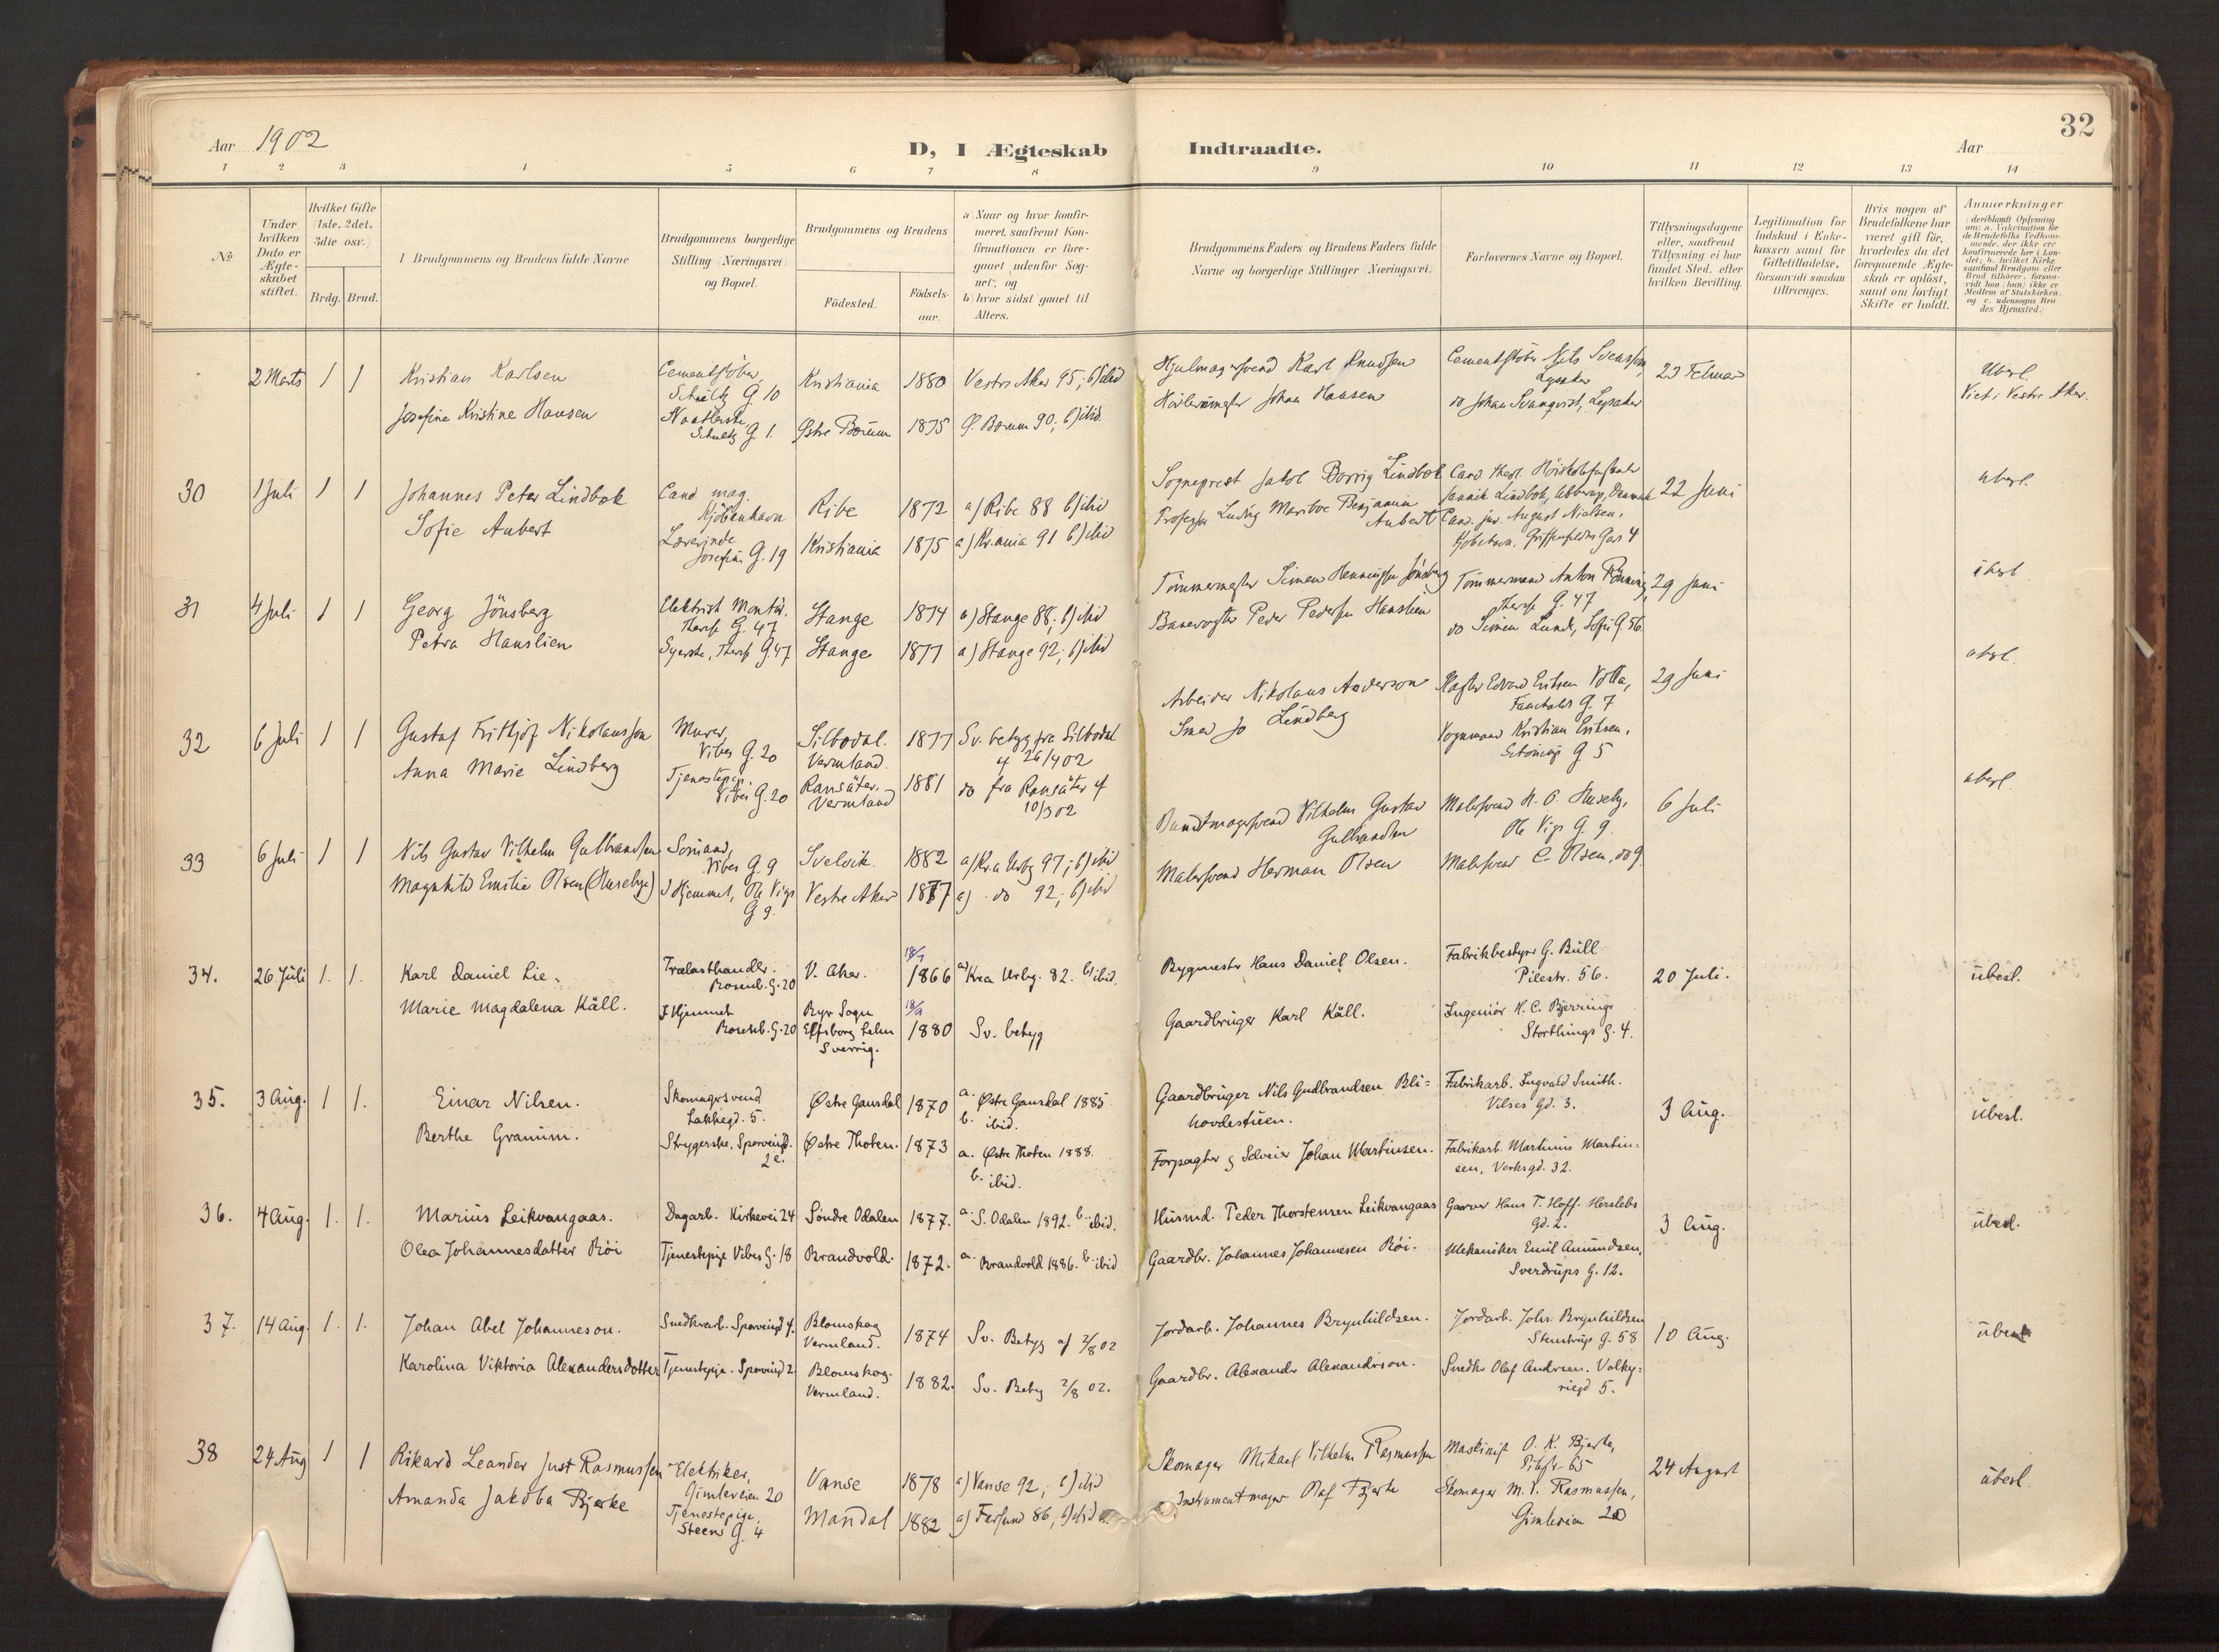 32
Aar 1902
D, I Ægteskab Indtraadte.
Aar
1 2 3 4 5 6 7 8 9 10 11 12 13 14
No
Under hvilken Dato er Ægte-skabet stiftet.
Hvilket Gifte (1ste, 2det, 3die osv.)
Brdg. Brud.
Brudgommens og Brudens fulde Navne
Brudgommens borgerlige Stilling (Næringsvei) og Bopæl.
Brudgommens og Brudens
Fødested.
Fødsels-aar.
a) Naar og hvor konfir-
meret, saafremt Kon-
firmationen er fore-
gaaet udenfor Sog-
net, og
b) hvor sidst gaaet til
Alters.
Brudgommens Faders og Brudens Faders fulde
Navne og borgerlige Stillinger (Næringsvei).
Forlovernes Navne og Bopæl.
Tillysningsdagene
eller, saafremt
Tillysning ei har
fundet Sted, efter
hvilken Bevilling.
Legitimation for
Indskud i Enke-
kassen samt for
Giftetilladelse,
forsaavidt saadan
tiltrænges.
Hvis nogen af
Brudefolkene har
været gift før,
hvorledes da det
foregaaende Ægte-
skab er opløst,
samt om lovligt
Skifte er holdt.
Anmærkninger
2 Marts 1 1 Kristian Karlsen
Cementstøber, Schultz G 10
Kristiania 1880 Vestre Aker 95; b) ibid
Hjulmagersvend Karl Knudsen
Cementstøber Nils Svensson, Lysaker
23 Februar
Ubesl.
Viet i Vestre Aker.
Josefine Kristine Hansen
Schultz G 1.
Østre Bærum 1875 Ø. Bærum 90; b) ibid.
Johan Hansen
do Johan Svanqvist, Lysaker
30 1 Juli 1 1 Johannes Peter Lindbæk
Cand mag. Kjøbenhavn
Ribe 1872 a) Ribe 88 b) ibid
Sogneprest Jakob Borrig Lindbæk
22 Juni
ubesl.
Sofie Aubert
Lærerinde Josefines G. 19
Kristiania 1875 a) Kr.ania 91 b) ibid
Professor Ludvig Maribo Benjamin Aubert
Cand. jur. August Nielsen, Kjøbenhavn, Griffenfeldts Gade 4
31 4 Juli 1 1 Georg Jönsberg
Elektrisk Montör. Theres G. 47
Stange 1874 a) Stange 88; b) ibid
Tømmermester Simen Henningsen Jönsberg
Tømmermand Anton Rønning, Theres G. 47
29 Juni
ubesl
Petra Hanslien
Syerske, Theres G. 47
Stange 1877 a) Stange 92; b) ibid
Banevogter Peder Pedersen Hanslien
do Simen Lunde, Sofies G. 56.
32 6 Juli 1 1 Gustaf Fritjof Nikolausson
Murer, Vibes G. 20
Silbodal. Vermland 1877 Sv. betyg fra Silbodal af 26/4 02
Arbeider Nikolaus Anderson
29 Juni
ubesl.
Anna Marie Lindberg
Tjenestepige. Vibes G. 20
Ransäter. Vermland 1881 do fra Ransäter af 10/5 02
Smed Jo Lindberg
Vognmand Kristian Eriksen, G 5
33 6 Juli 1 1 Nils Gustav Vilhelm Gulbrandsen
Sømand, Vibes G. 9
Svelvik. 1882 a) Kr.a Urbg 97; b) ibid
Bundtmagersvend Vilhelm Gustav Gulbrandsen
Malersvend H. O. Huseby, Ole Vigs G. 9.
6 Juli
ubesl.
Magnhild Emilie Olsen (Husebye)
I Hjemmet, Ole Vigs G 9.
Vestre Aker 1877 a) do 92; b) ibid
Malersvend Herman Olsen
Malersvend C. Olsen, do 9.
34. 26 Juli 1. 1. Karl Daniel Lie.
Trælasthandler. Rosenb. G. 20
V. Aker. 1866 a) Kra Urbg. 82. b) ibid.
Bygmester Hans Daniel Olsen.
Fabrikbestyrer G. Büll Pilestr. 56.
20 Juli.
übesl.
Marie Magdalena Käll.
I Hjemmet Rosenb. G. 20
Ryr Sogn Elfsborg Lehn Sverrig. 1880 Sv. betyg
Gaardbruger Karl Käll.
Ingeniör H. C. Bjerrings Storthings G. 4.
35. 3 Aug. 1 1. Einar Nilsen.
Skomagersvend Lakkegd. 5.
Østre Gausdal 1870 a. Østre Gausdal 1885 b. ibid.
Gaardbruger Nils Gudbrandsen Bli-
hovdestuen.
Fabrikarb. Ingvald Smith. Vilses Gd. 3.
3 Aug.
übesl.
Berthe Granum.
Strygerske, Sporveisgd. 2e.
Østre Thoten. 1873 a. Østre Thoten 1888. b. ibid.
Forpagter og Selveier Johan Martinsen.
Fabrikarb. Martinus Martin-
sen, Verksgd. 32.
36. 4 Aug. 1. 1. Marius Leikvangaas.
Dagarb. Kirkevei 24
Søndre Odalen 1877. a. S. Odalen 1892. b. ibid.
Husmd. Peder Thorstensen Leikvangaas
Garver Hans T. Hoff. Herslebs gd. 2.
3 Aug.
übesl.
Olea Johannesdatter Röi
Tjenestepige Vibes G. 18
Brandvold. 1872. a. Brandvold 1886. b. ibid
Gaardbr. Johannes Johannesen Röi.
Mekaniker Emil Amundsen, Sverdrups G. 12.
37. 14 Aug. 1. 1. Johan Abel Johanneson.
Snedkerarb. Sporveisgd 4.
Blomskog Vermland. 1874 Sv. Betyg af 2/8 02
Jordarb. Johannes Brynhildsen.
Jordarb. Johs. Brynhildsen Stenstrups G. 58
10 Aug.
übesl
Karolina Viktoria Alexandersdotter
Tjenestepige. Sporveisgd 2
Blomskog. Vermland. 1882. Sv. Betyg 2/8 02.
Gaardbr. Alexander Alexanderson.
Snedker Olaf Andersen. Valky-
riegd 5.
38 24 Aug 1 1 Rikard Leander Just Rasmussen
Elektriker, Gimleveien 20
Vanse 1878 a) Vanse 92; b) ibid
Skomager Mikael Vilhelm Rasmussen
Maskinist O. K. Bjerke, Pilestr. 65
24 August
übesl.
Amanda Jakoba Bjerke
Tjenestepige, Steens G. 4
Mandal 1882 a) Farsund 86, b) ibid
Instrumentmager Olaf Bjerke
Skomager M. V. Rasmussen, Gimleveien 20